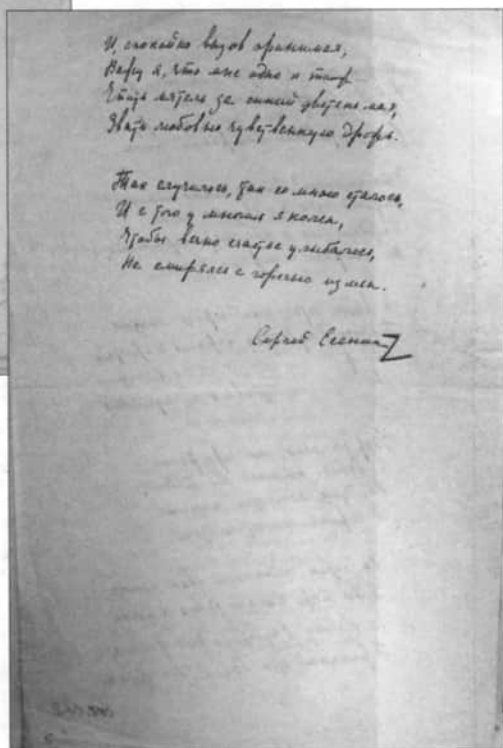 И, спокойно вызов принимая,
Вижу я, что мне одно и то ж
Чтить мятель за синий цветень мая,
Звать любовью чувственную дрожь.
Так случилось, так со мною сталось,
И с того у многих я колен,
Чтобы вечно счастье улыбалось,
Не смиряясь с горечью измен.
Сергей Есенин